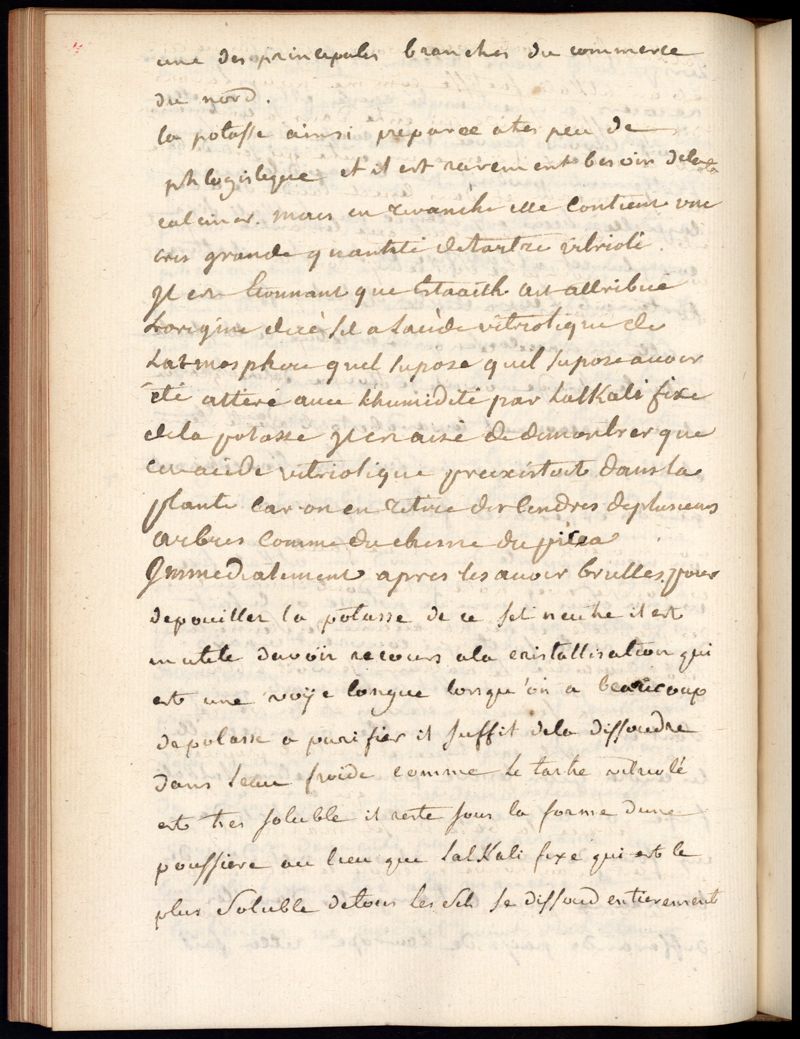 une des principales branches du commerce
du nord.
la potasse ainsi preparee a tres peu de
phlogistique et il est rarement besoin dela
calciner. mais en revanche elle contient une
tres grande quantité detartre vitriolé.
jl est Etonnant que ait attribué
Lorigine dece sel a lacide vitriolique de
Latmosphere quil supose quil supose avoir
été attiré avec lhumidité par LalKali fixe
dela potasse jl est aisé de demontrer que
cet acide vitriolique preexistoit dans la
plante car on en retire des Cendres deplusieurs
arbres comme du chesne du picea
Immediatement apres les avoir brullés. pour
depouiller la potasse de ce sel neutre il est
inutile davoir recours ala cristallisation qui
est une voÿe longue lorsqu'on a beaucoup
depotasse a purifier il suffit dela dissoudre
dans leau froide comme le tartre vitriolé
est tres soluble il reste sous la forme dune
poussiere au lieu que LalKali fixe qui est le
plus Soluble detous les Sels se dissoud entierement